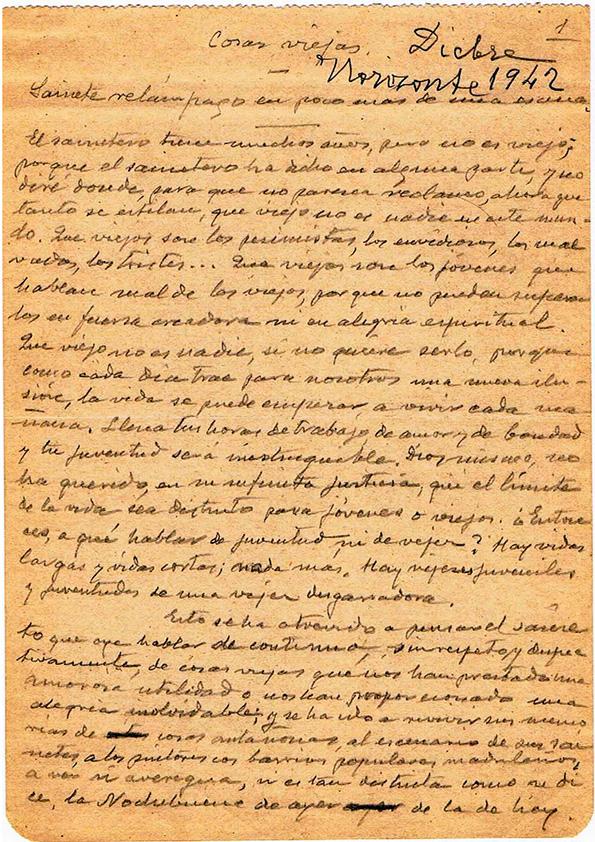 1
Cosas viejas.
Dicbre
Horizonte 1942
Sainete relámpago en poco mas de una escena.
El sainetero tiene muchos años, pero no es viejo;
porque el sainetero ha dicho en alguna parte, y no
diré donde, para que no parezca reclamo, ahora que
tanto se estilan, que viejo no es nadie en este mun-
do. Que viejos son los pesimistas, los envidiosos, los mal
vados, los tristes... Que viejos son los jóvenes que
hablan mal de los viejos, porque no pueden superar
los en fuerza creadora ni en alegria espiritual.
Que viejo no es nadie, si no quiere serlo, porque
como cada dia trae para nosotros una nueva ilu-
sión, la vida se puede empezar a vivir cada ma
ñana. Llena tus horas de trabajo de amor y de bondad
y tu juventud sera inextinguible. Dios mismo, no
ha querido, en su infinita justicia, que el límite
de la vida sea distinto para jóvenes o viejos. ¿Enton
ces, a qué hablar de juventud, ni de vejez? Hay vidas
largas y vidas cortas; nada mas. Hay vejeces juveniles
y juventudes de una vejez desgarradora.
Esto se ha atrevido a pensar el sainete
ro que oye hablar de continuo, sin respeto y despec
tivamente, de cosas viejas que nos han prestado una
amorosa utilidad o nos han proporcionado una
alegria inolvidable; y se ha ido a revivir sus memo
rias de cosas antañonas, al escenario de sus sai
netes, a los pintorescos barrios populares madrileños,
a ver si averigua, si es tan distinta como se di
ce, la Nochebuena de ayer de la de hoy.